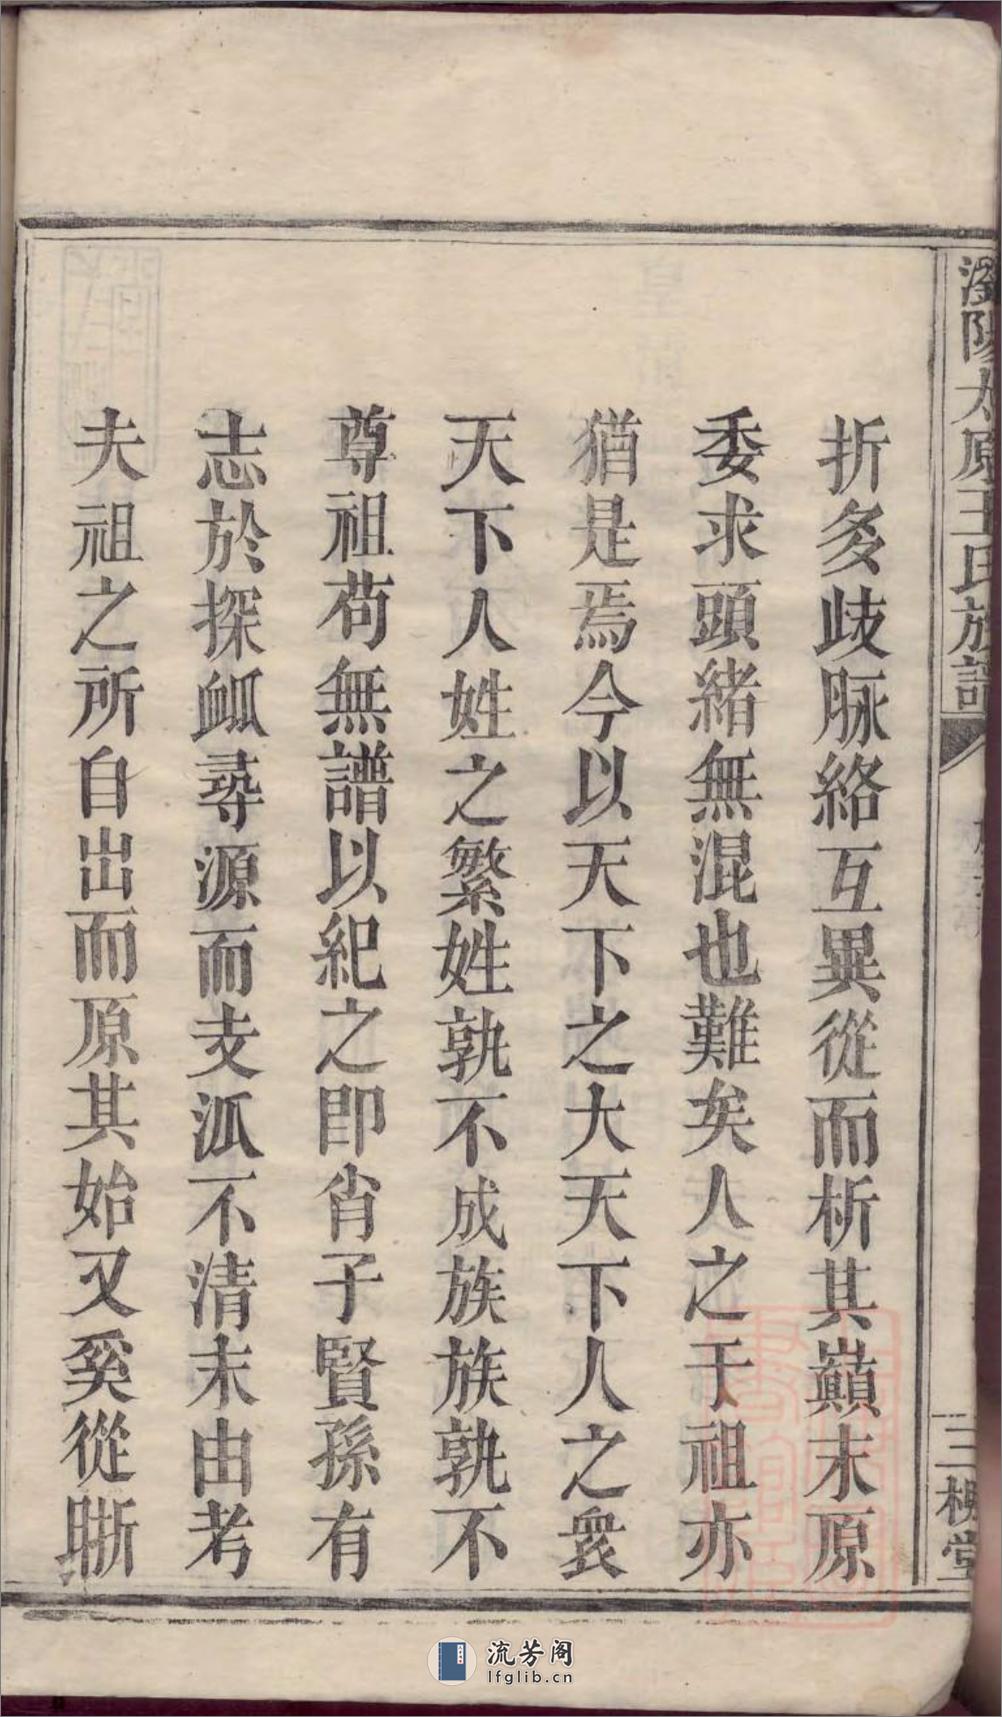 瀏陽太原王氏族譜
三槐堂
折多歧脉絡互異從而析其巔末原
委求頭緒無混也難矣人之于祖亦
猶是焉今以天下之大天下人之衆
天下人姓之繁姓孰不成族族孰不
尊祖苟無譜以紀之即肖子賢孫有
志於探𧖴尋源而支泒不清末由考
夫祖之所自出而原其始又奚從晰
流芳阁
lfglib.cn